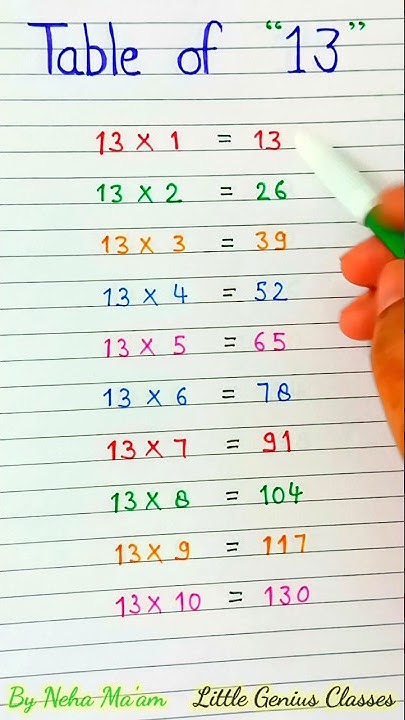 Table of “13”
13 × 1 = 13
13 × 2 = 26
13 × 3 = 39
13 × 4 = 52
13 × 5 = 65
13 × 6 = 78
13 × 7 = 91
13 × 8 = 104
13 × 9 = 117
13 × 10 = 130
By Neha Ma'am Little Genius Classes